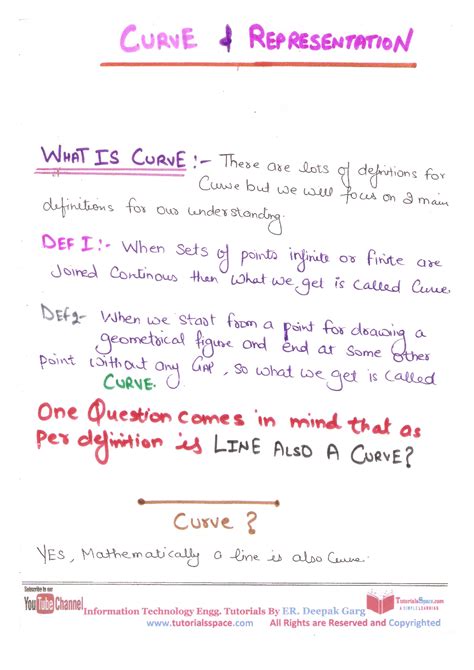 CURVE & REPRESENTATION
WHAT IS CURVE :- There are lots of definitions for
Curve but we will focus on 2 main
definitions for our understanding.
DEF I :- When sets of points infinite or finite are
Joined Continous then what we get is Called Curve.
DEF 2- When we start from a point for drawing a
geometrical figure and end at some other
point without any GAP, so what we get is called
CURVE.
One Question comes in mind that as
per definition is LINE ALSO A CURVE?
Curve ?
YES, Mathematically a line is also Curve.
Subscribe to our
YouTube Channel
Information Technology Engg. Tutorials By ER. Deepak Garg
www.tutorialsspace.com All Rights are Reserved and Copyrighted
TutorialsSpace.com
A SIMPLE LEARNING